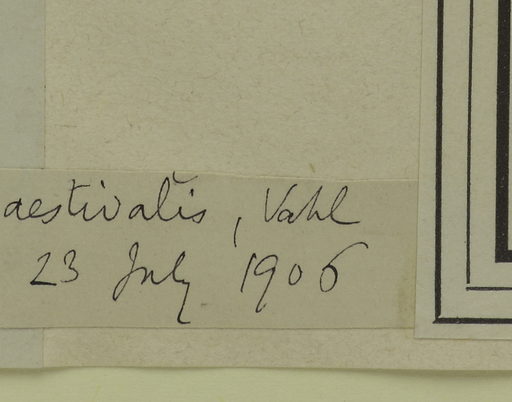 aestivalis, Vahl
23 July 1906